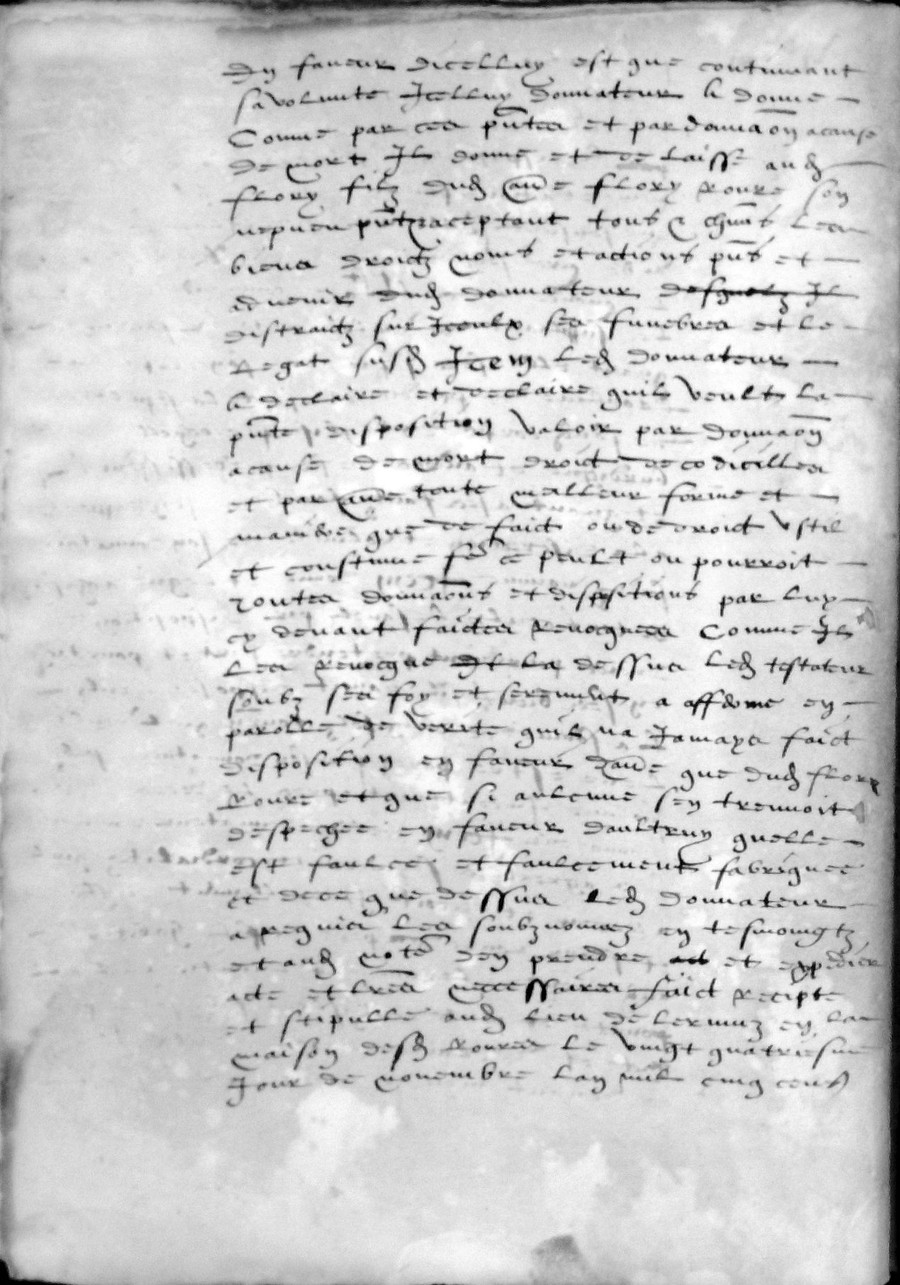 En faveur dicelluy est que continuant
sa volunte Icelluy donnateur a donne
Comme par ces pntes et par donnaon acause
de mort Il donne et delaisse aud
flory filz dud flory Roure son
nepveu pnt aceptant tous & chuns les
biens droictz noms et actions pns et
advenir dud donnateur desquelz Il
distraictz sur Iceulx ses funebres et le
legat susd Item led donnateur
a declaire et declaire quil veult la
pnte disposition valoir par donnaon
acause de mort droict de codicilles
et par toute meilleur forme et
maniere que de faict ou de droict
et coustume se peult ou pourroit
Toutes donnaons et dispositions par luy
cy devant faictes Revocquees Comme Il
les Revocque Et la dessus led testateur
soubz ses foy et serement a afferme en
parolle de verite quil na Jamays faict
disposition en faveur que dud flory
Roure et que si aulcune sen treuvoit
despechee en faveur daultruy quelle
est faulce et faulcement fabriquee
et de ce que dessus led donnateur
a requis les soubznommez en tesmoingtz
et aud note den prendre et expedier
acte et lres neccessaires faict recipte
et stipulle aud lieu de lermuz en la
maison desd Roures le vingt quatriesme
Jour de novembre lan mil cinq cens